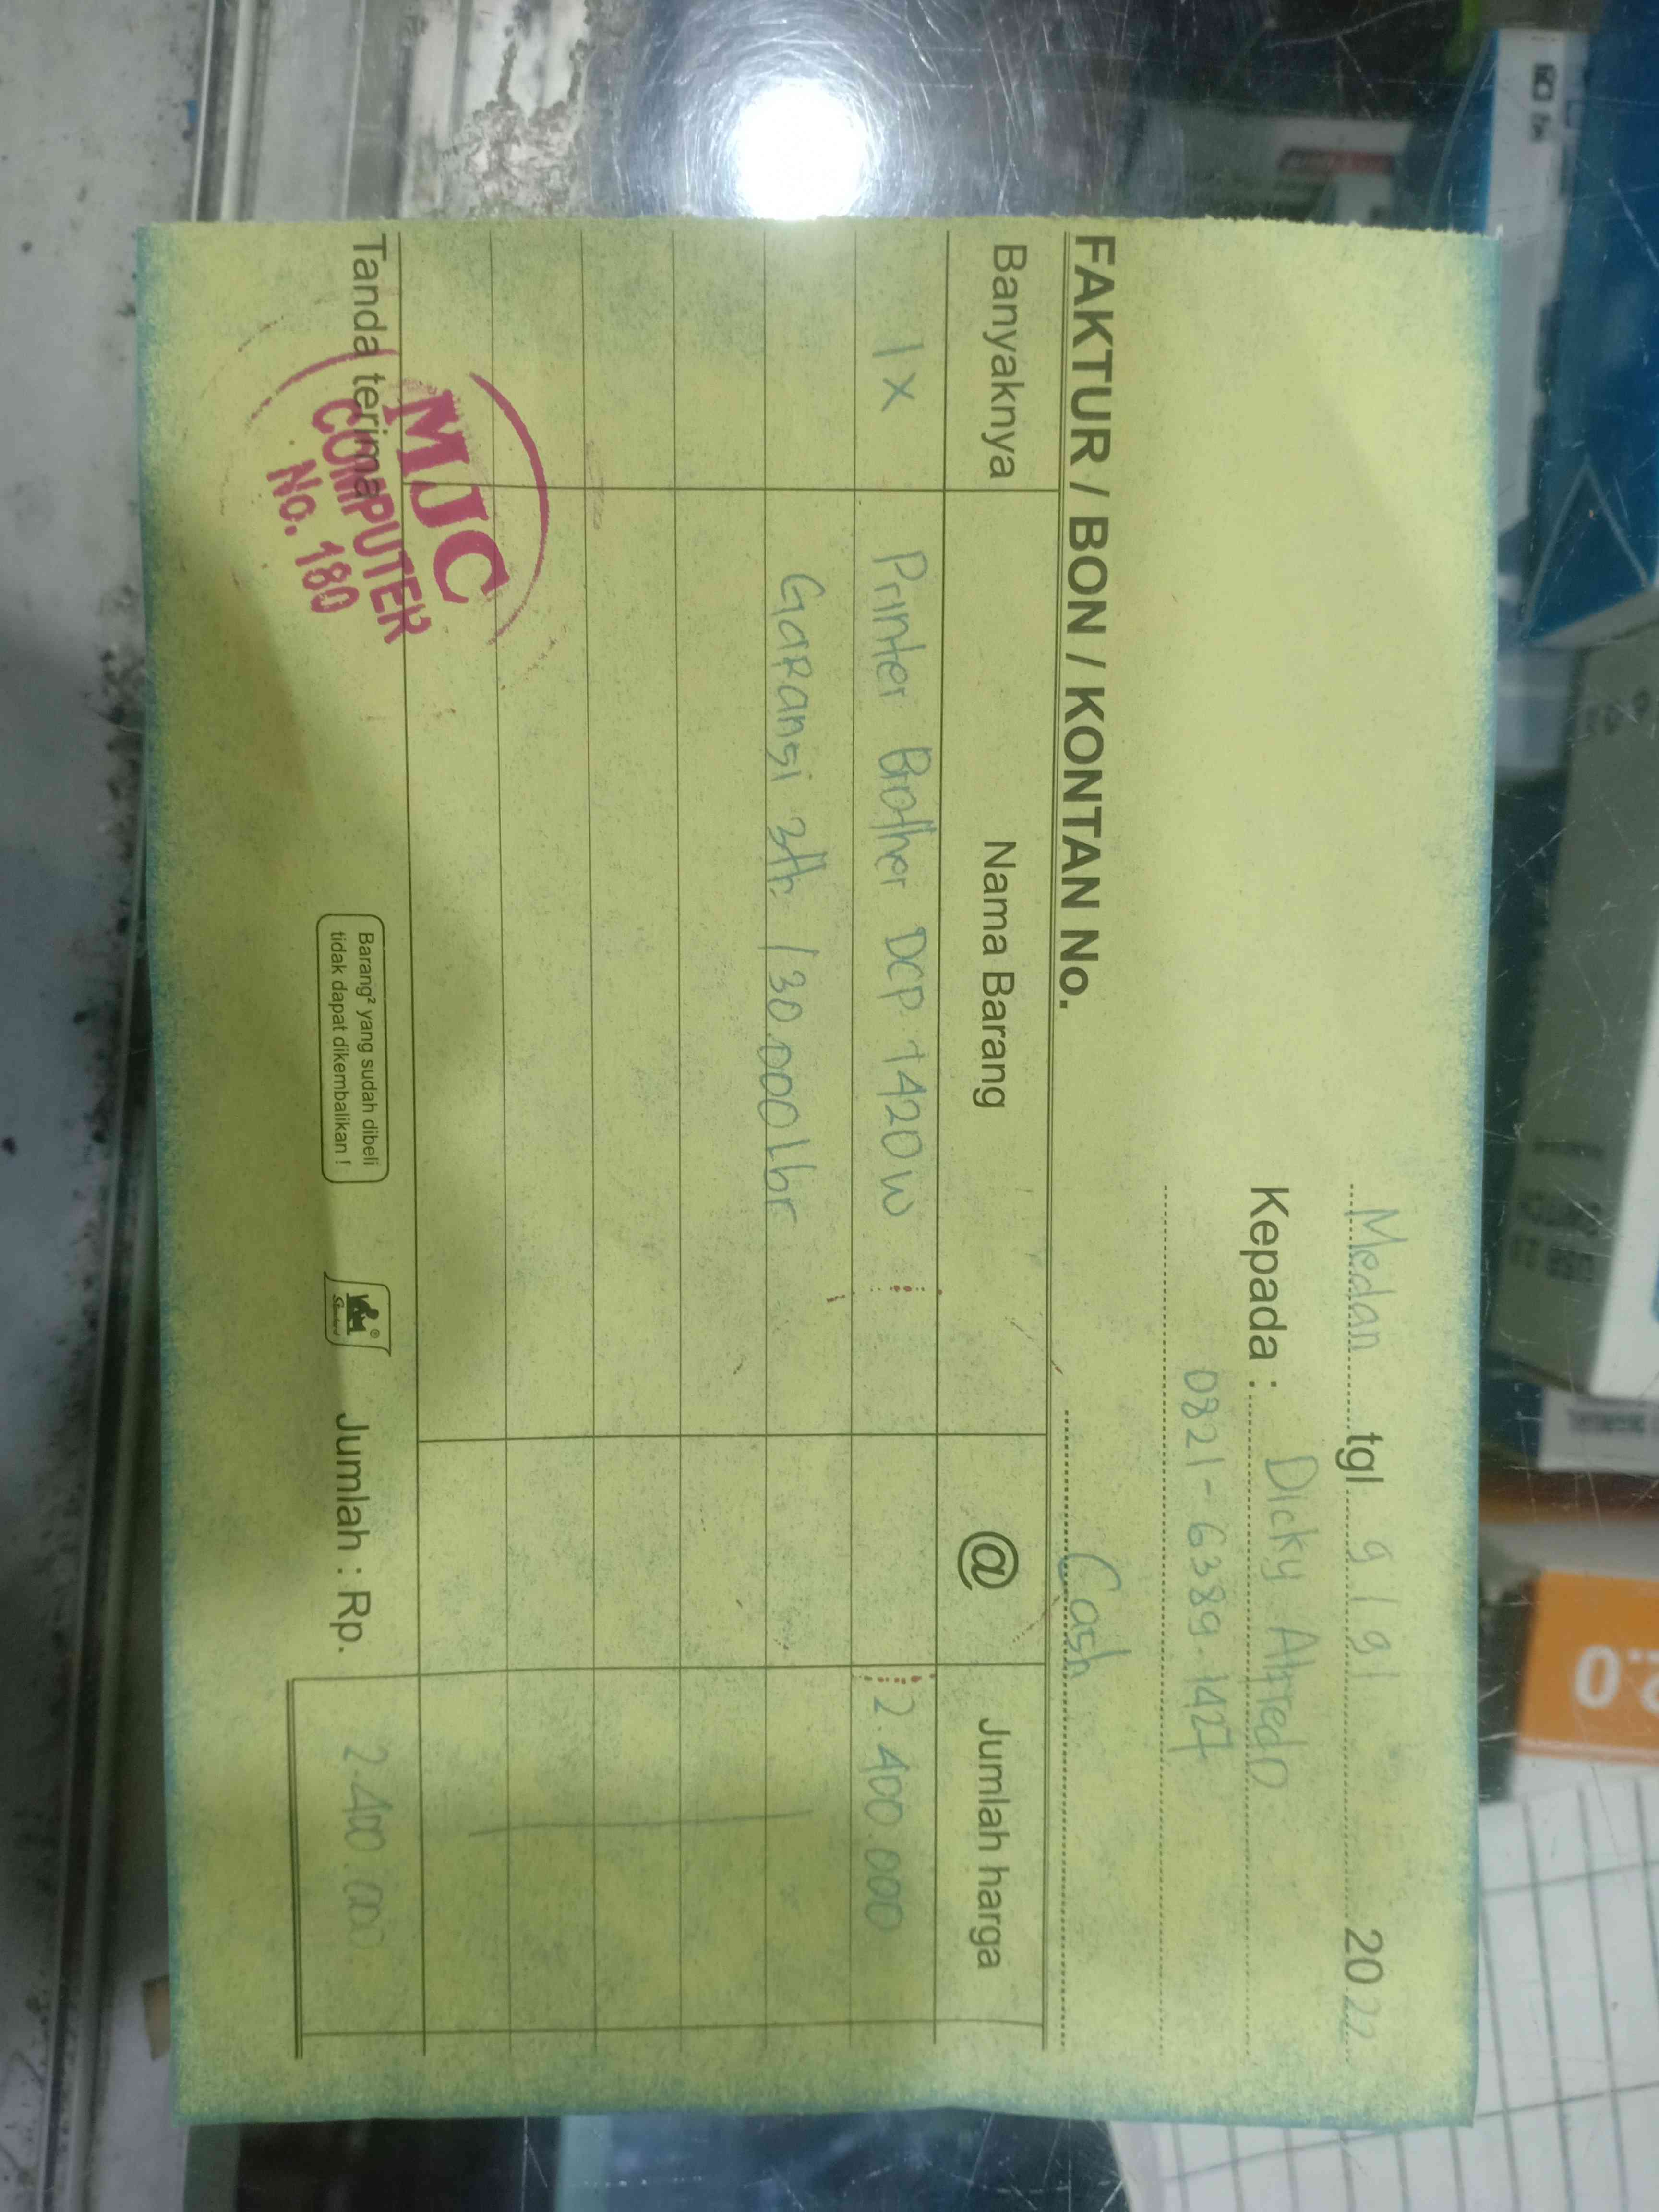 Medan tgl 9 / 9 / 2022
Kepada : Dicky Alfredo
0821-6389-1427
FAKTUR / BON / KONTAN No. Cash
Banyaknya Nama Barang @ Jumlah harga
1 x Printer Brother DCP T420W 2.400.000
Garansi 3th / 30.000 lbr
Tanda terima
MJC
COMPUTER
No. 180
Barang² yang sudah dibeli
tidak dapat dikembalikan !
Jumlah : Rp. 2.400.000